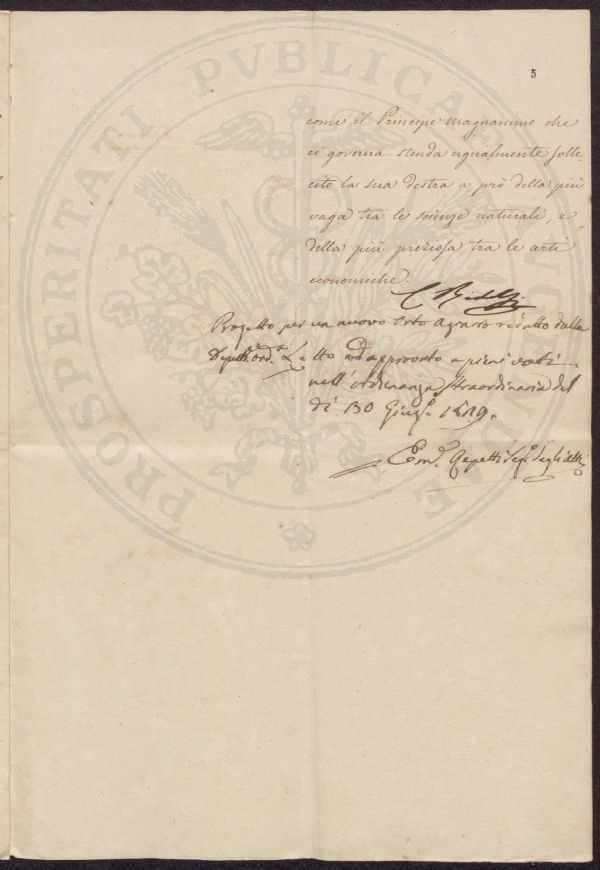 5
come il Principe magnanimo che
ci governa stenda ugualmente solle
cito la sua destra a prò della più
vaga tra le scienze naturali, e
della più preziosa tra le arti
economiche.
Progetto per un nuovo Orto Agrario redatto dalla
Letto ed approvato a pieni voti
nell'Adunanza straordinaria del
dì 30 Giug.
Em. Repetti Seg. degli Atti
PROSPERITATI PVBLICAE